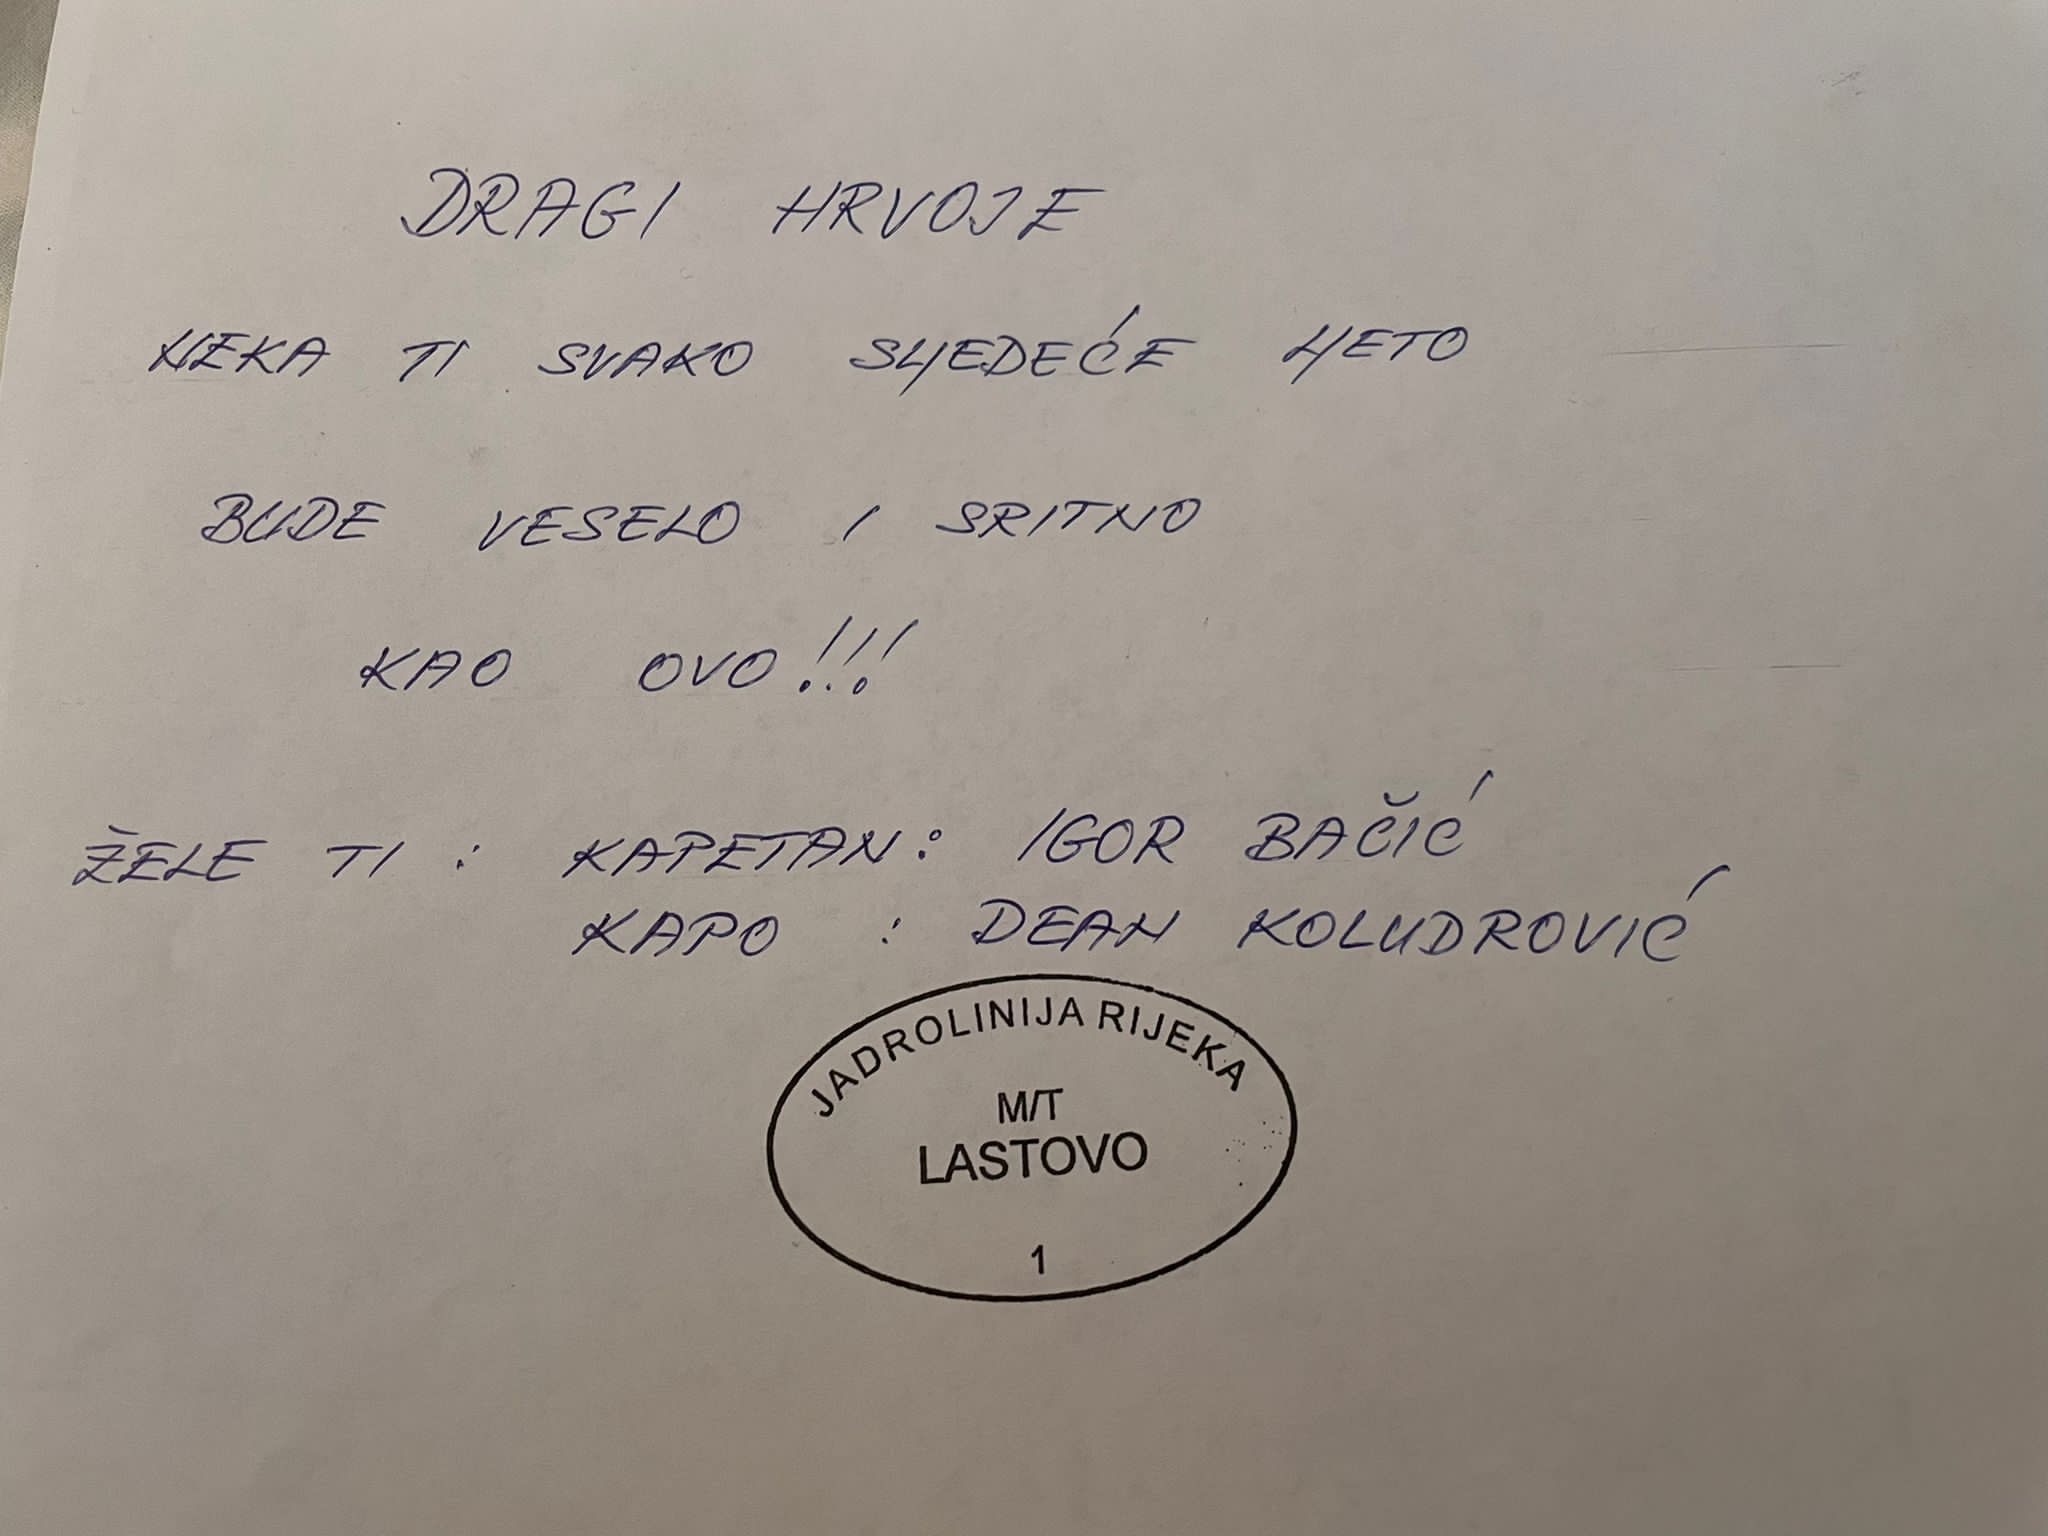 DRAGI HRVOJE
NEKA TI SVAKO SLJEDEĆE LJETO
BUDE VESELO I SRITNO
KAO OVO!!!
ŽELE TI : KAPETAN: IGOR BAČIĆ
KAPO : DEAN KOLUDROVIĆ
JADROLINIJA RIJEKA
M/T
LASTOVO
1